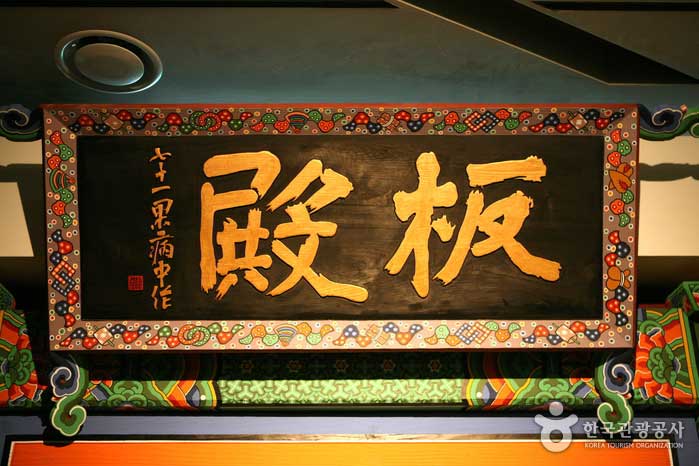 板殿
七十一果病中作
한국관광공사
KOREA TOURISM ORGANIZATION